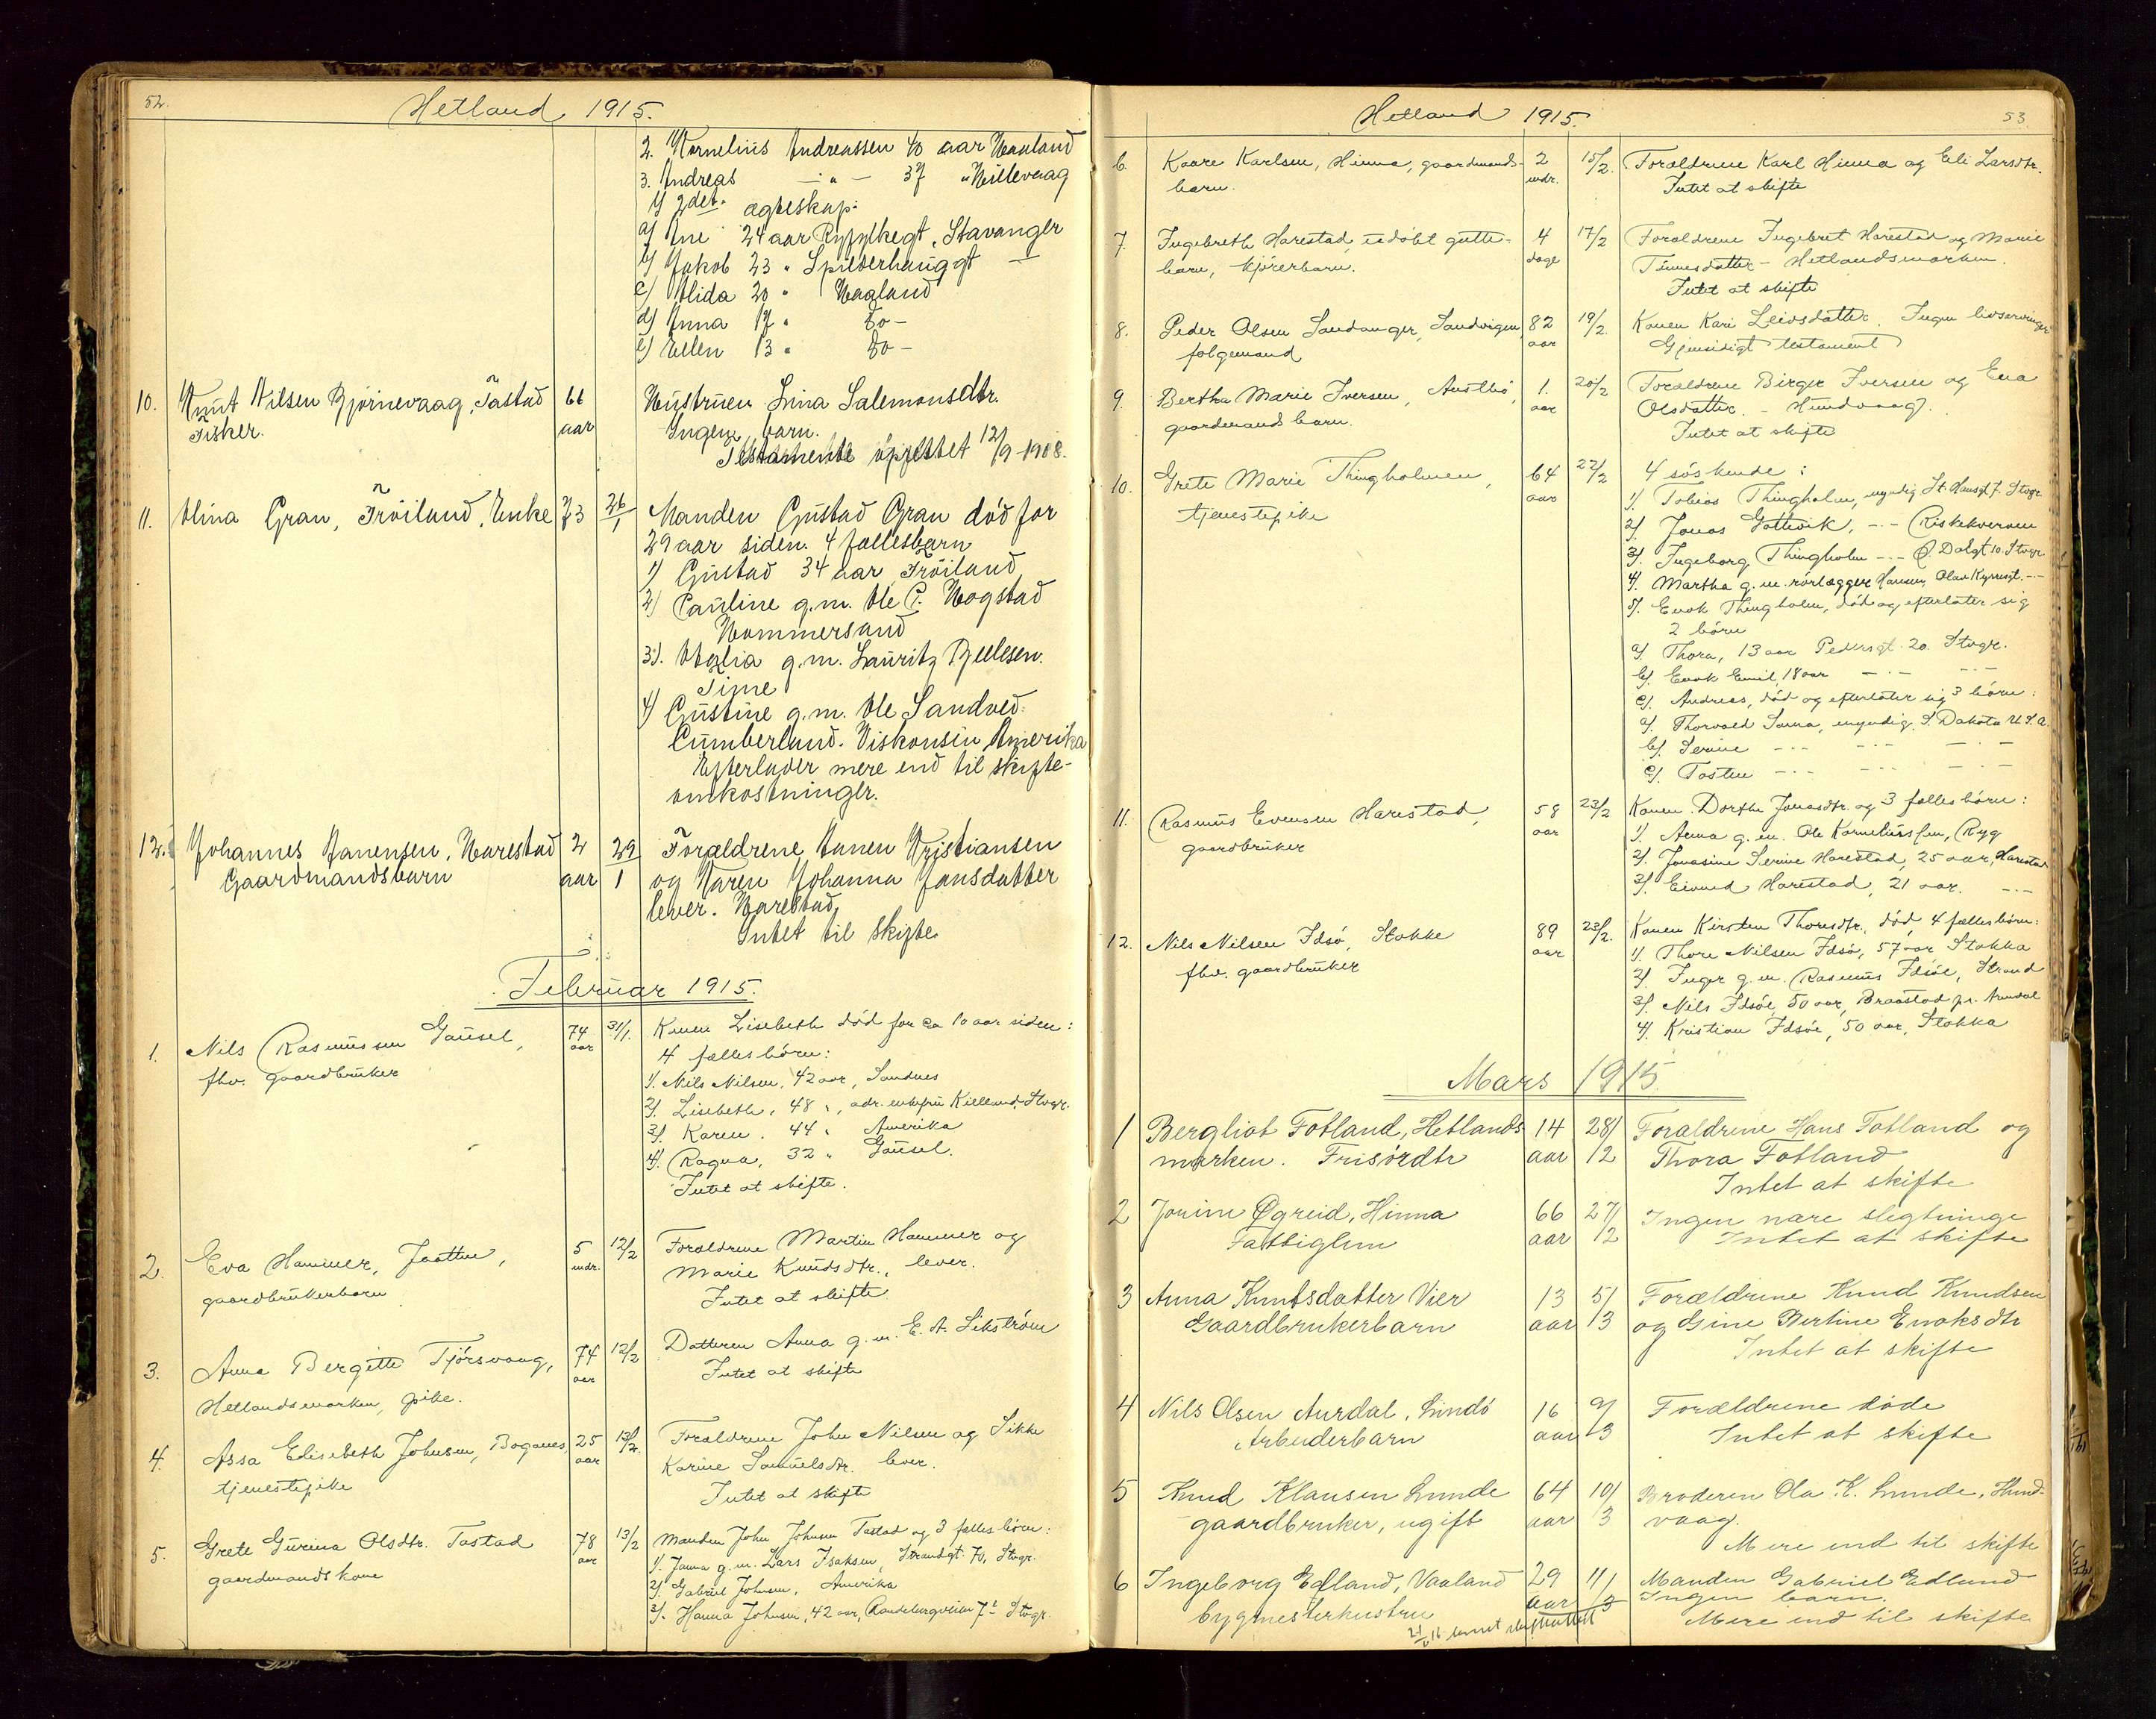 52.
Hetland 1915.
2. Kornelius Andreassen 40 aar Haaland
3. Andreas — " — 37 " Hillevaag
I 2det. ægteskap:
a) Ane 24 aar Ryfylkegt. Stavanger
b) Jakob 23 " Spilderhauggt —"—
c) Olida 20 " Haaland
d) Anna 17 " do —
e) Ellen 13 " do —
10. Knut Nilsen Bjørnevaag, Tastad 66 Hustruen Lina Salemonsdtr.
Fisker. aar Ingen barn.
Testamente oprettet 12/9-1908.
11. Olina Gran, Frøiland, Enke 73 26/1 Manden Gustad Gran død for
29 aar siden. 4 fællesbarn
1) Gustad 34 aar, Frøiland
2) Pauline g.m. Ole P. Hogstad
Hommersand
3). Otelia g.m. Lauritz
Time
4) Gustine g.m. Ole Sandved.
Cumberland. Viskonsin, Amerika
Efterlader mere end til skifte-
omkostninger.
12. Johannes Janensen, Harestad 2 29 Forældrene Janen Kristiansen
Gaardmandsbarn aar 1 og Karen Johanna Jansdatter
lever. Harestad.
Intet til skifte
Februar 1915.
1. Nils Rasmussen Gausel, 74 aar 31/1. Konen Lisebeth død for ca 10 aar siden:
fhv. gaardbruker 4 fælles børn:
1). Nils Nilsen, 42 aar, Sandnes
2). Lisebeth, 48 ", adr. enkefru Kielland, Stvgr.
3). Karen. 44 " Amerika
4). Ragna, 32 " Gausel.
Intet at skifte.
2. Eva Hammer, Jaatten, 5 mdr. 12/2 Forældrene Martin Hammer og
gaardbrukerbarn Marie Knudsdtr., lever.
Intet at skifte
3. Anna Bergitte Tjørsvaag, 74 aar 12/2 Datteren Anna g.m. E. A. Sikstrøm
Hetlandsmarken, pike. Intet at skifte
4. Assa Elisebeth Johnsen, Boganes, 25 aar 13/2. Forældrene John Nilsen og Sikke
tjenestepike Karine Samuelsdtr. lever.
Intet at skifte
5. Grete Gurina Olsdtr. Tastad 78 aar 13/2 Manden John Johnsen Tastad og 3 fælles børn:
gaardmandskone 1). Janna g.m. Lars Isaksen, Strandgt. 70, Stvgr.
2) Gabriel Johnsen, Amerika
3). Hanna Johnsen, 42 aar, Randebergveien 7 b Stvgr.
Hetland 1915.
53.
6. Kaare Karlsen, Hinna, gaardmands- 2 mdr. 15/2. Forældrene Karl Hinna og Eli Larsdtr.
barn. Intet at skifte
7. Ingebreth Harestad, uedøbt gutte- 4 dage 17/2 Forældrene Ingebret Harestad og Marie
barn, kjørerbarn. Tinnesdatter - Hetlandsmarken.
Intet at skifte
8. Peder Olsen Sandanger, Sandvigen, 82 aar 19/2. Konen Kari Leivsdatter. Ingen livsarvinger
folgemand Gjensidigt testament
9. Bertha Marie Iversen, Austbø, 1. aar 20/2 Forældrene Birger Iversen og Ena
gaardmandsbarn. Olsdatter. - Hundvaag.
Intet at skifte
10. Grete Marie Thingholmen, 64 aar 22/2 4 søskende:
tjenestepike 1). Tobias Thingholm, myndig St. Hansgt 7. Stvgr.
2). Jonas Gottevik, -"- Riskekvernen
3). Ingeborg Thingholm -"- Ø. Dalgt 10. Stvgr.
4). Martha g.m. rørlægger Hansen, Olav Kyrresgt. -"-
5). Enok Thingholm, død og efterlater sig
2 børn
a). Thora, 13 aar Pedersgt. 20. Stvgr.
b). Enok Emil, 18 aar -"- -"-
c). Andreas, død og efterlater sig 3 børn:
a). Thorvald Sama, myndig, S. Dakota U.S.A.
b). Serine -"- -"- -"-
c). Tosten -"- -"- -"-
11. Rasmus Evensen Harestad, 58 aar 23/2 Konen Dorthe Jonasdtr. og 3 fælles børn:
gaardbruker 1). Anna g.m. Ole Korneliussen, Ryg
2). Jonasine Serine Harestad, 25 aar, Harestad
3). Eivind Harestad, 21 aar. -"-
12. Nils Nilsen Idsø, Stokke 89 aar 23/2. Konen Kirsten Thoresdtr., død, 4 fælles børn:
fhv. gaardbruker 1). Thore Nilsen Idsø, 57 aar Stokka
2) Inger g.m. Rasmus Idsøe, Strand
3). Nils Idsøe, 50 aar, Braastad pr. Arendal
4). Kristian Idsøe, 50 aar, Stokka
Mars 1915.
1 Bergliot Fotland, Hetlands 14 28/ Forældrene Hans Fotland og
marken. Frisørdtr aar 12 Thora Fotland
Intet at skifte
2 Jorine Øgreid, Hinna 66 27/ Ingen nære slegtninge
Fattiglem aar 12 Intet at skifte
3 Anna Knutsdatter Vier 13 5/ Forældrene Knud Knudsen
Gaardbrukerbarn aar 13 og Gine Bertine Enoksdtr
Intet at skifte
4 Nils Olsen Aurdal, Lindø 16 9/ Forældrene døde
Arbeiderbarn aar 3 Intet at skifte
5 Knud Klausen Lunde 64 10/ Broderen Ola K. Lunde, Hund-
gaardbruker, ugift aar 3 vaag.
Mere end til skifte
6 Ingeborg Edland, Vaaland 29 11/ Manden Gabriel Edland
bygmesterhustru aar 3 Ingen barn.
Mere end til skifte